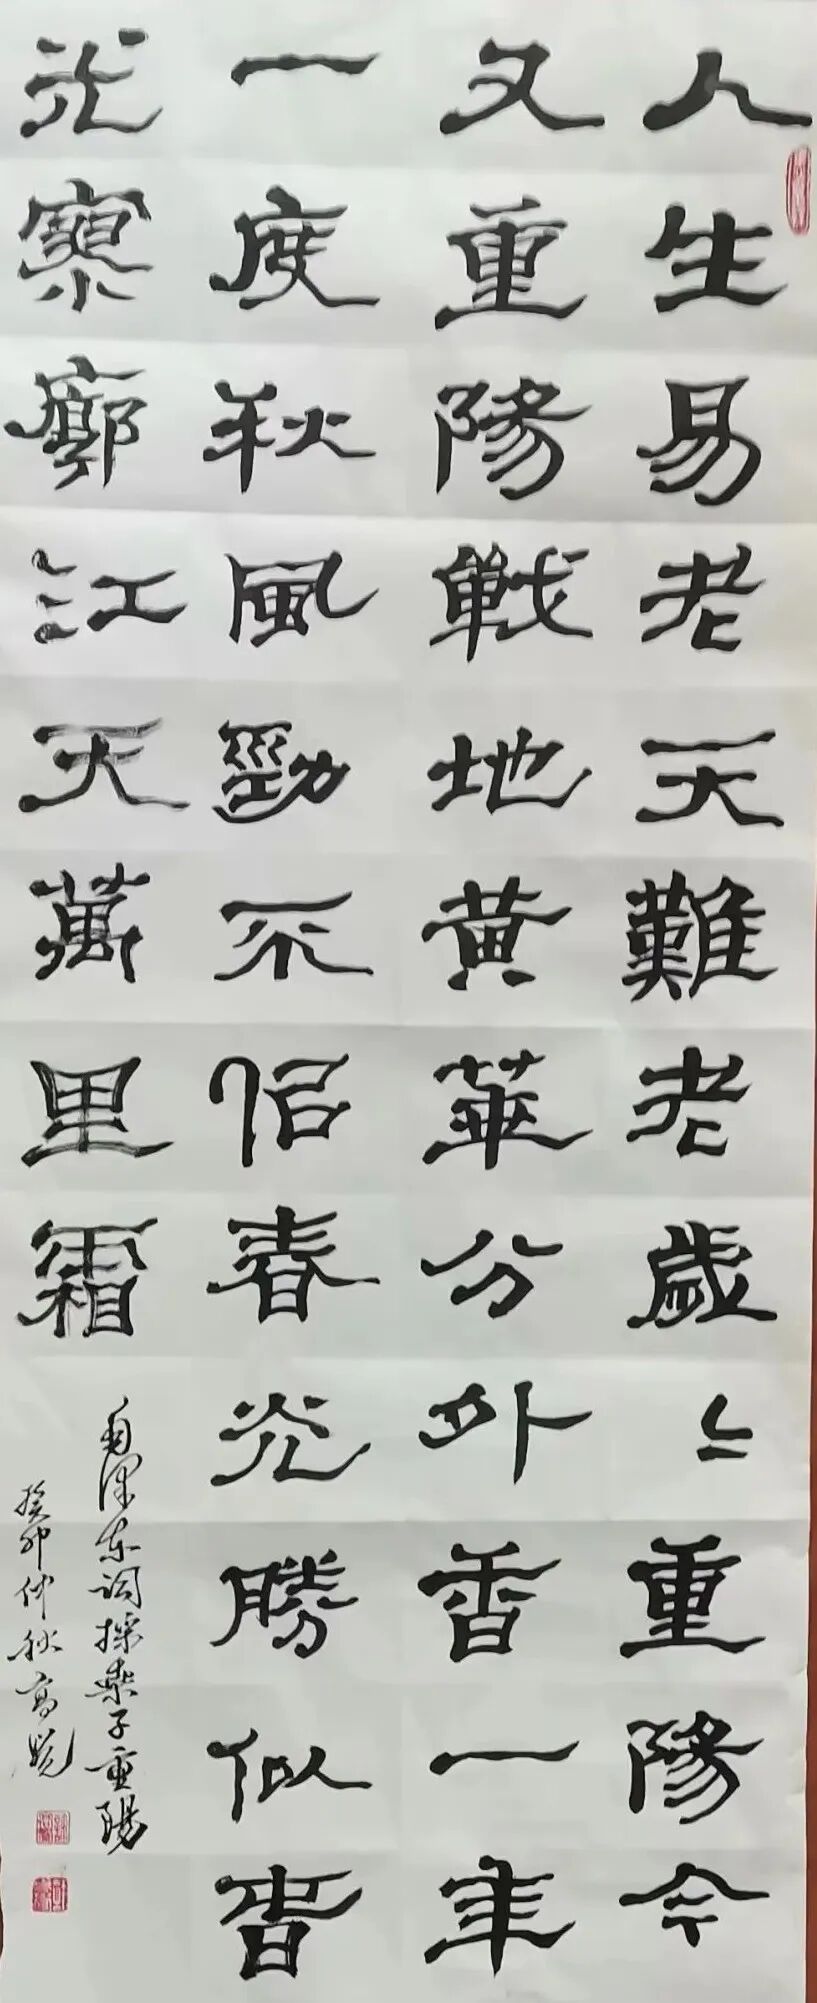 人生易老天難老歲〻重陽今
又重陽戰地黃華分外香一年
一度秋風勁不佀春光勝似春
光寥廓江天萬里霜
毛澤东词採桑子重陽
癸卯仲秋高